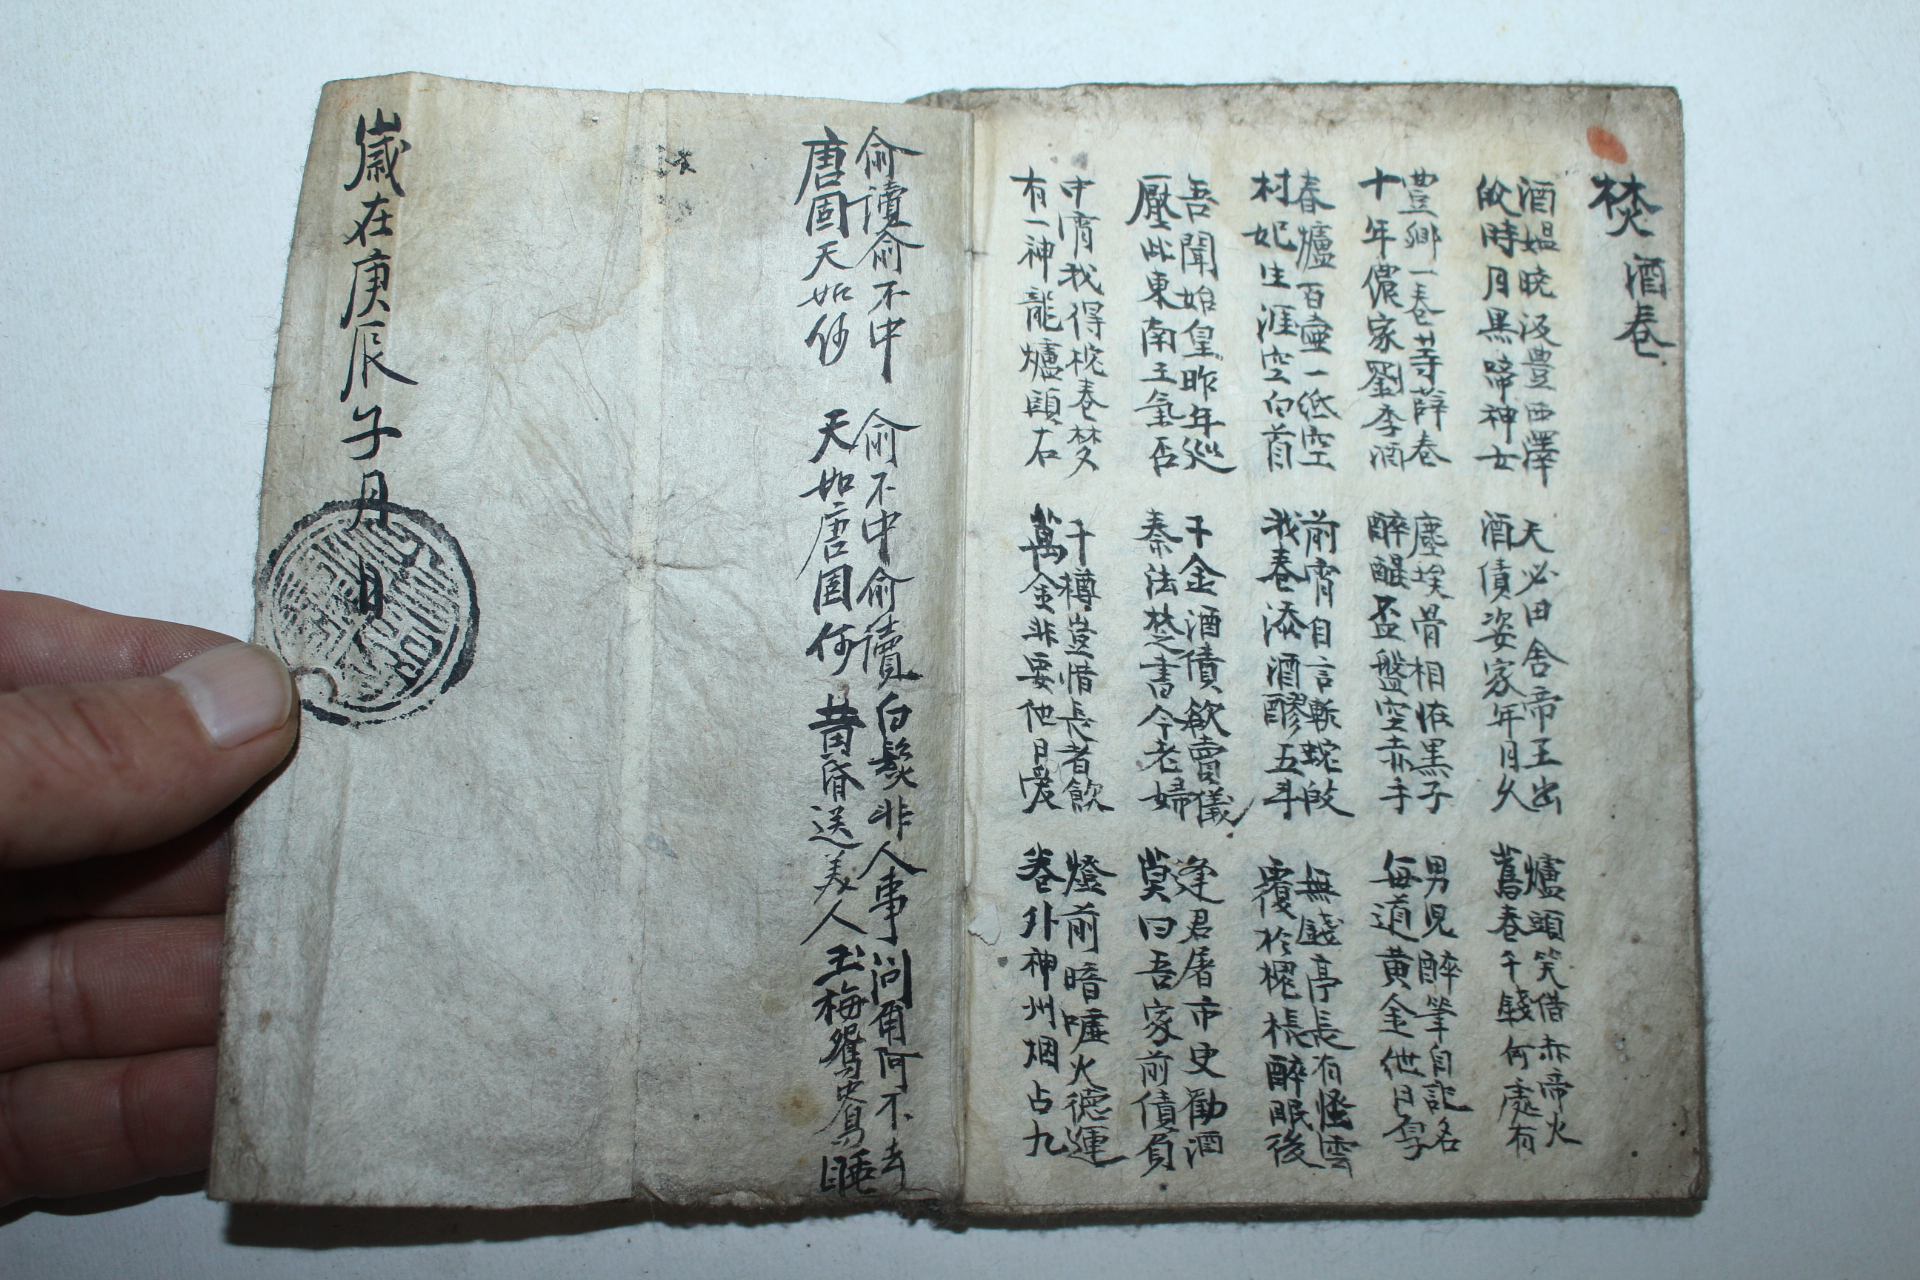 焚酒卷
酒媼晚汲豊西澤 天必田舍帝王出 爐頭笑借赤帝火
飮時月黑啼神女 酒債姿家年月久 舊卷千錢何處有
豊鄉一卷等薛卷 塵埃骨相恠黑子 男兒醉筆自記名
十年儂家劉季酒 醉醒盃盤空赤手 每道黃金他日厚
春爐百壺一紙空 前宵自言斬蛇飮 無錢亭長有怪雲
村妃生涯空白首 我卷添酒醪五斗 覆於榥帳醉眠後
吾聞始皇昨年巡 千金酒債欲賣儀 逢君屠市史勸酒
壓此東南王氣否 秦法焚書今老婦 莫曰吾家前債負
中宵我得枕卷焚 千樽豈惜長者飮 燈前暗噓火德運
有一神龍爐頭右 萬金非要他日爱 卷外神州烟占九
俞讀俞不中 俞不中俞讀 白鬚非人事 問甭阿不去
唐囯天如何 天如唐囯何 黃昏送美人 玉梅鴛鴦睡
歲在庚辰子月 日